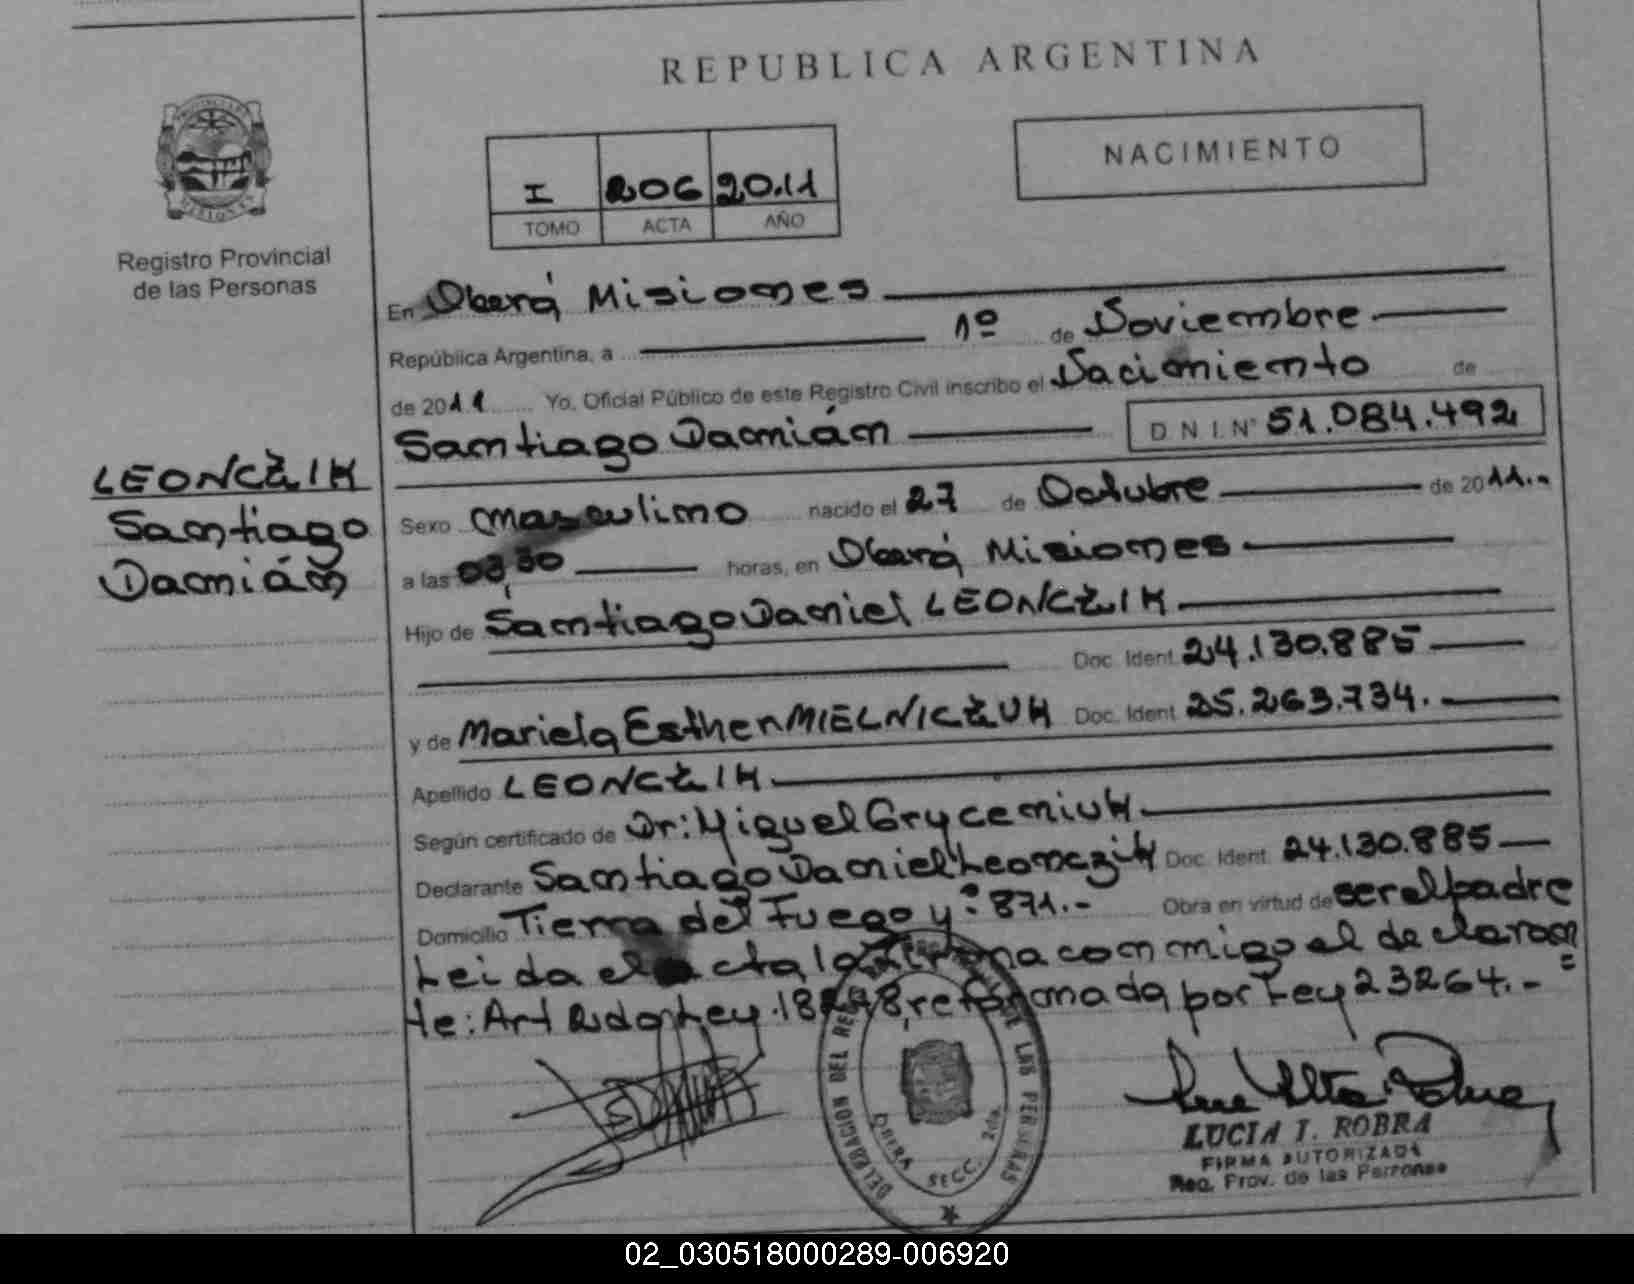 REPUBLICA ARGENTINA
NACIMIENTO
I 206 2011
TOMO ACTA AÑO
Registro Provincial
de las Personas
En Oberá Misiones
República Argentina, a 1º de Noviembre
de 2011 Yo, Oficial Público de este Registro Civil inscribo el Nacimiento de
Santiago Damián D N I. Nº 51.084.492
LEONCZIK
Santiago
Damián
Sexo masculino nacido el 27 de Octubre de 2011.-
a las 03,30 horas, en Oberá Misiones
Hijo de Santiago Daniel LEONCZIK
Doc. Ident. 24.130.885
y de Mariela Esther MIELNICZUK Doc. Ident. 25.263.734.
Apellido LEONCZIK
Según certificado de Dr: Miguel Gryceniuk
Declarante Santiago Daniel Leonczik Doc. Ident. 24.130.885
Domicilio Tierra del Fuego y: 871.- Obra en virtud de ser el padre
Leida el acta la firma conmigo el declaran
te: Art 2do Ley 18248, reformada por Ley 23264.-
DELEGACION DEL REG DE LAS PERSONAS
OBERA SECC. 2da.
LUCIA I. ROBRA
FIRMA AUTORIZADA
Reg. Prov. de las Personas
02_030518000289-006920